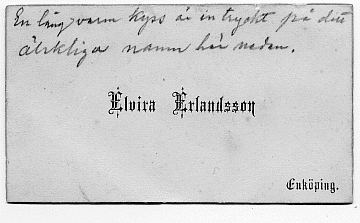 En lång varm kyss är intryckt på ditt
älskliga namn här nedan.
Elvira Erlandsson
Enköping.